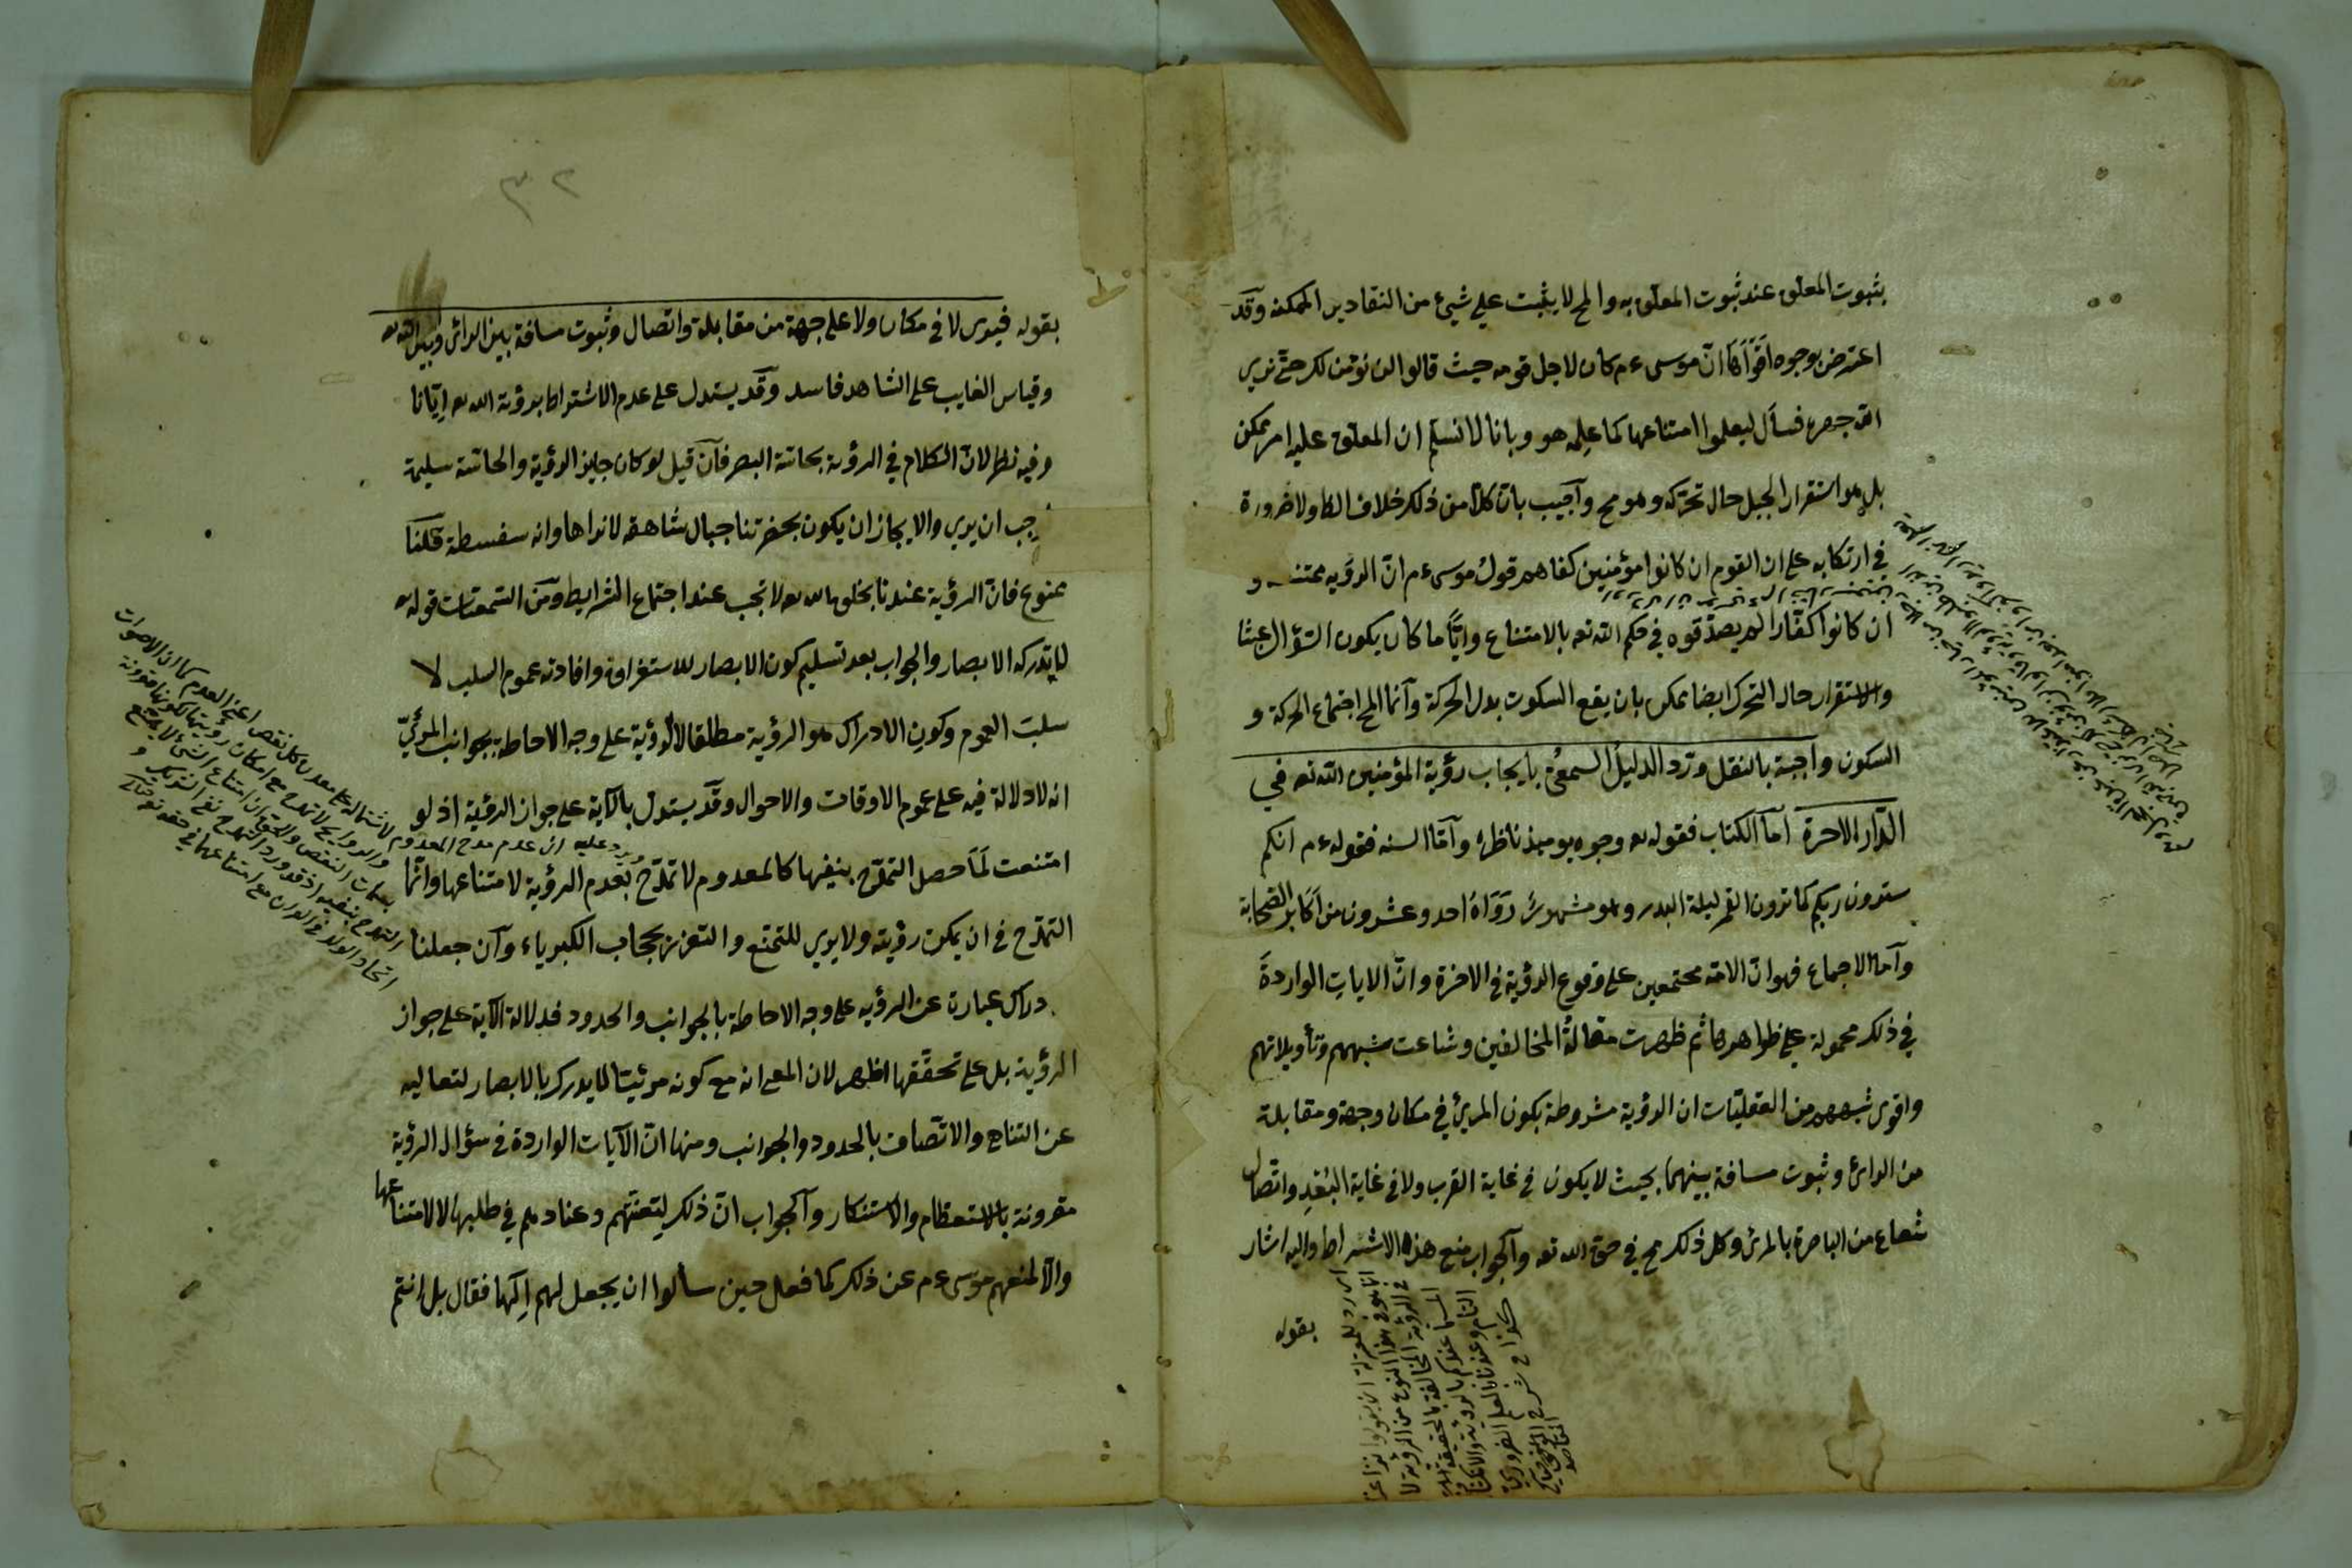 بثبوت المعلق عند ثبوت المعلق به والمح لا يثبت على شيئ من التقادير الممكنة وقد
اعترض بوجوه اقواها ان موسى ءم كان لاجل قومه حيث قالوا لن نؤمن لك حتى نرى
الله جهرة فسأل ليعلموا امتناعها كما علمه هو وبانا لا نسلم ان المعلق عليه امر ممكن
بل هو استقرار الجبل حال تحركه وهو مح وأجيب بان كلا من ذلك خلاف الظا ولا ضرورة
في ارتكابه على ان القوم ان كانوا مؤمنين كفاهم قول موسى ءم ان الرؤية ممتنعة و
ان كانوا كفارا لم يصدقوه في حكم الله تعه بالامتناع وايا ما كان يكون السؤال عبثا
والاستقرار حال التحرك ايضا ممكن بان يقع السكون بدل الحركة وانما المح اجتماع الحركة و
السكون واجبة بالنقل ورد الدليل السمعي بايجاب رؤية المؤمنين الله تعه في
الدار الاخرة اما الكتاب فقوله تعه وجوه يوميذ ناظرة وأما السنه فقوله ءم انكم
سترون ربكم كما ترون القمر ليلة البدر وهو مشهور رواه احد وعشرون من اكابر الصحابة
وأما الاجماع فهو ان الامة مجتمعين على وقوع الرؤية في الاخرة وان الايات الواردة
في ذلك محمولة على ظواهرها ثم ظهرت مقالة المخالفين وشاعت شبههم وتأويلاتهم
واقوى شبههم من العقليات ان الرؤية مشروطة بكون المرئي في مكان وجهة ومقابلة
من الرائى وثبوت مسافة بينهما بحيث لا يكون في غاية القرب ولا في غاية البعد واتصال
شعاع من الباصرة بالمرئى وكل ذلك مح في حق الله تعه والجواب منع هذا الاشتراط واليه اشار
بقوله
٣٢
بقوله فيرى لا في مكان ولا على جهة من مقابلة واتصال وثبوت مسافة بين الرائى وبين الله تعه
وقياس الغايب على الشاهد فاسد وقد يستدل على عدم الاشتراط برؤية الله تعه إيانا
وفيه نظر لان الكلام في الرؤية بحاسة البصر فان قيل لو كان جايز الرؤية والحاسة سليمة
وجب ان يرى والا لجاز ان يكون بحضرتنا جبال شاهقة لا نراها وانه سفسطة قلنا
ممنوع فان الرؤية عندنا بخلق الله تعه لا تجب عند اجتماع الشرايط ومن السمعيات قوله تعه
لا تدركه الابصار والجواب بعد تسليم كون الابصار للاستغراق وافادته عموم السلب لا
سلب العموم وكون الادراك هو الرؤية مطلقا لا الرؤية على وجه الاحاطة بجوانب المرئي
انه لا دلالة فيه على عموم الاوقات والاحوال وقد يستدل بالآية على جواز الرؤية اذ لو
امتنعت لما حصل التمدح بنفيها كالمعدوم لا تمدح بعدم الرؤية لامتناعها وانما
التمدح في ان يمكن رؤيته ولا يرى للتمتع والتعزز بحجاب الكبرياء وان جعلنا
دراك عبارة عن الرؤيه على وجه الاحاطة بالجوانب والحدود فدلالة الآية على جواز
الرؤية بل على تحققها اظهر لان المعى انه مع كونه مرئيا لا يدرك بالابصار لتعاليه
عن التناهى والاتصاف بالحدود والجوانب ومنها ان الآيات الواردة في سؤال الرؤية
مقرونة بالاستعظام والاستنكار والجواب ان ذلك لتعنتهم وعنادهم في طلبها لا لامتناعها
والا لمنعهم موسى ءم عن ذلك كما فعل حين سألوا ان يجعل لهم إلها فقال بل انتم
ويرد عليه ان عدم مدح المعدوم لاشتماله على معدن كل نقص اعنى العدم كما ان الاصوات
والروايح لا تمدح مع امكان رؤيتها لكونها مقرونة
بسمات النقص والحق ان امتناع الشئ لا يمنع
التمدح بنفيه اذ قد ورد التمدح بنفى الشريك و
اتخاذ الولد في القران مع امتناعهما في حقه تعه